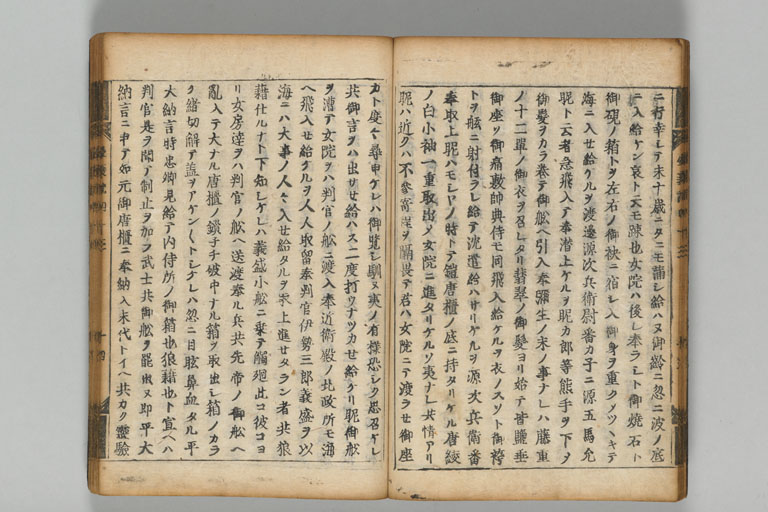 ニ行幸シテ未十歳ニタニモ満シ給ハヌ御齢ニ忽ニ波ノ底
ニ入給ケン哀ト云モ疎也女院ハ後レ奉ラシト御焼石ト
御硯ノ箱トヲ左右ノ御袂ニ宿シ入御身ヲ重クメツヽキテ
海ニ入セ給ケルヲ渡邊源次兵衛尉番カ子ニ源五馬允
眤ト云者急飛入テ奉潜上ケルヲ眤カ郎等熊手ヲ下ヲ
御髪ヲカラ巻テ御舩ヘ引入奉彌生ノ末ノ事ナレハ藤重
ノ十二單ノ御衣ヲ召レタリ翡翠ノ御髪ヨリ始テ皆鹽垂
御座ソ御痛敷帥典侍モ同飛入給ケルヲ衣ノスソト御袴
トヲ舩ニ射付ラレ給テ沈遣給ハサリケルヲ源次兵衛番
奉取上眤ハモシヤノ時トテ鎧唐櫃ノ底ニ持タリケル唐綾
ノ白小袖一重取出メ女院ニ進タリケルソ夷ナレ共情アリ
眤ハ近クハ不參寄ヲ畏テ君ハ女院ニテ渡ラセ御座
カト度々尋申ケレハ御覽シ馴ヌ夷ノ有様恐シク思召ケレ
共御言ヲハ出サセ給ハス二度打ウナツカセ給ケリ眤御舩
ヲ漕テ女院ヲハ判官ノ舩ニ渡入奉近衛殿ノ北政所モ海
ヘ飛入セ給ケルヲ人人取留奉判官伊勢三郎義盛ヲ以
海ニハ大事ノ人々入セ給タルヲ取上進セタラン者共狼
藉仕ルナト下知シケレハ義盛小舩ニ乗テ觸廻此コ彼コヨ
リ女房達ヲハ判官ノ舩ヘ送渡奉ル兵共先帝ノ御舩ヘ
亂入テ大ナル唐櫃ノ鎖子チ破中ナル箱ヲ取出シ箱ノカラ
ク緒切解テ盖ヲアケントシケレハ忽ニ目眩鼻血タル平
大納言時忠卿見給テ内侍所ノ御箱也狼藉也ト宣ヘハ
判官是ヲ聞テ制止ヲ加フ武士共御舩ヲ罷出ヌ即平大
納言ニ申テ如元御唐櫃ニ奉納入末代トイヘ共カク靈驗